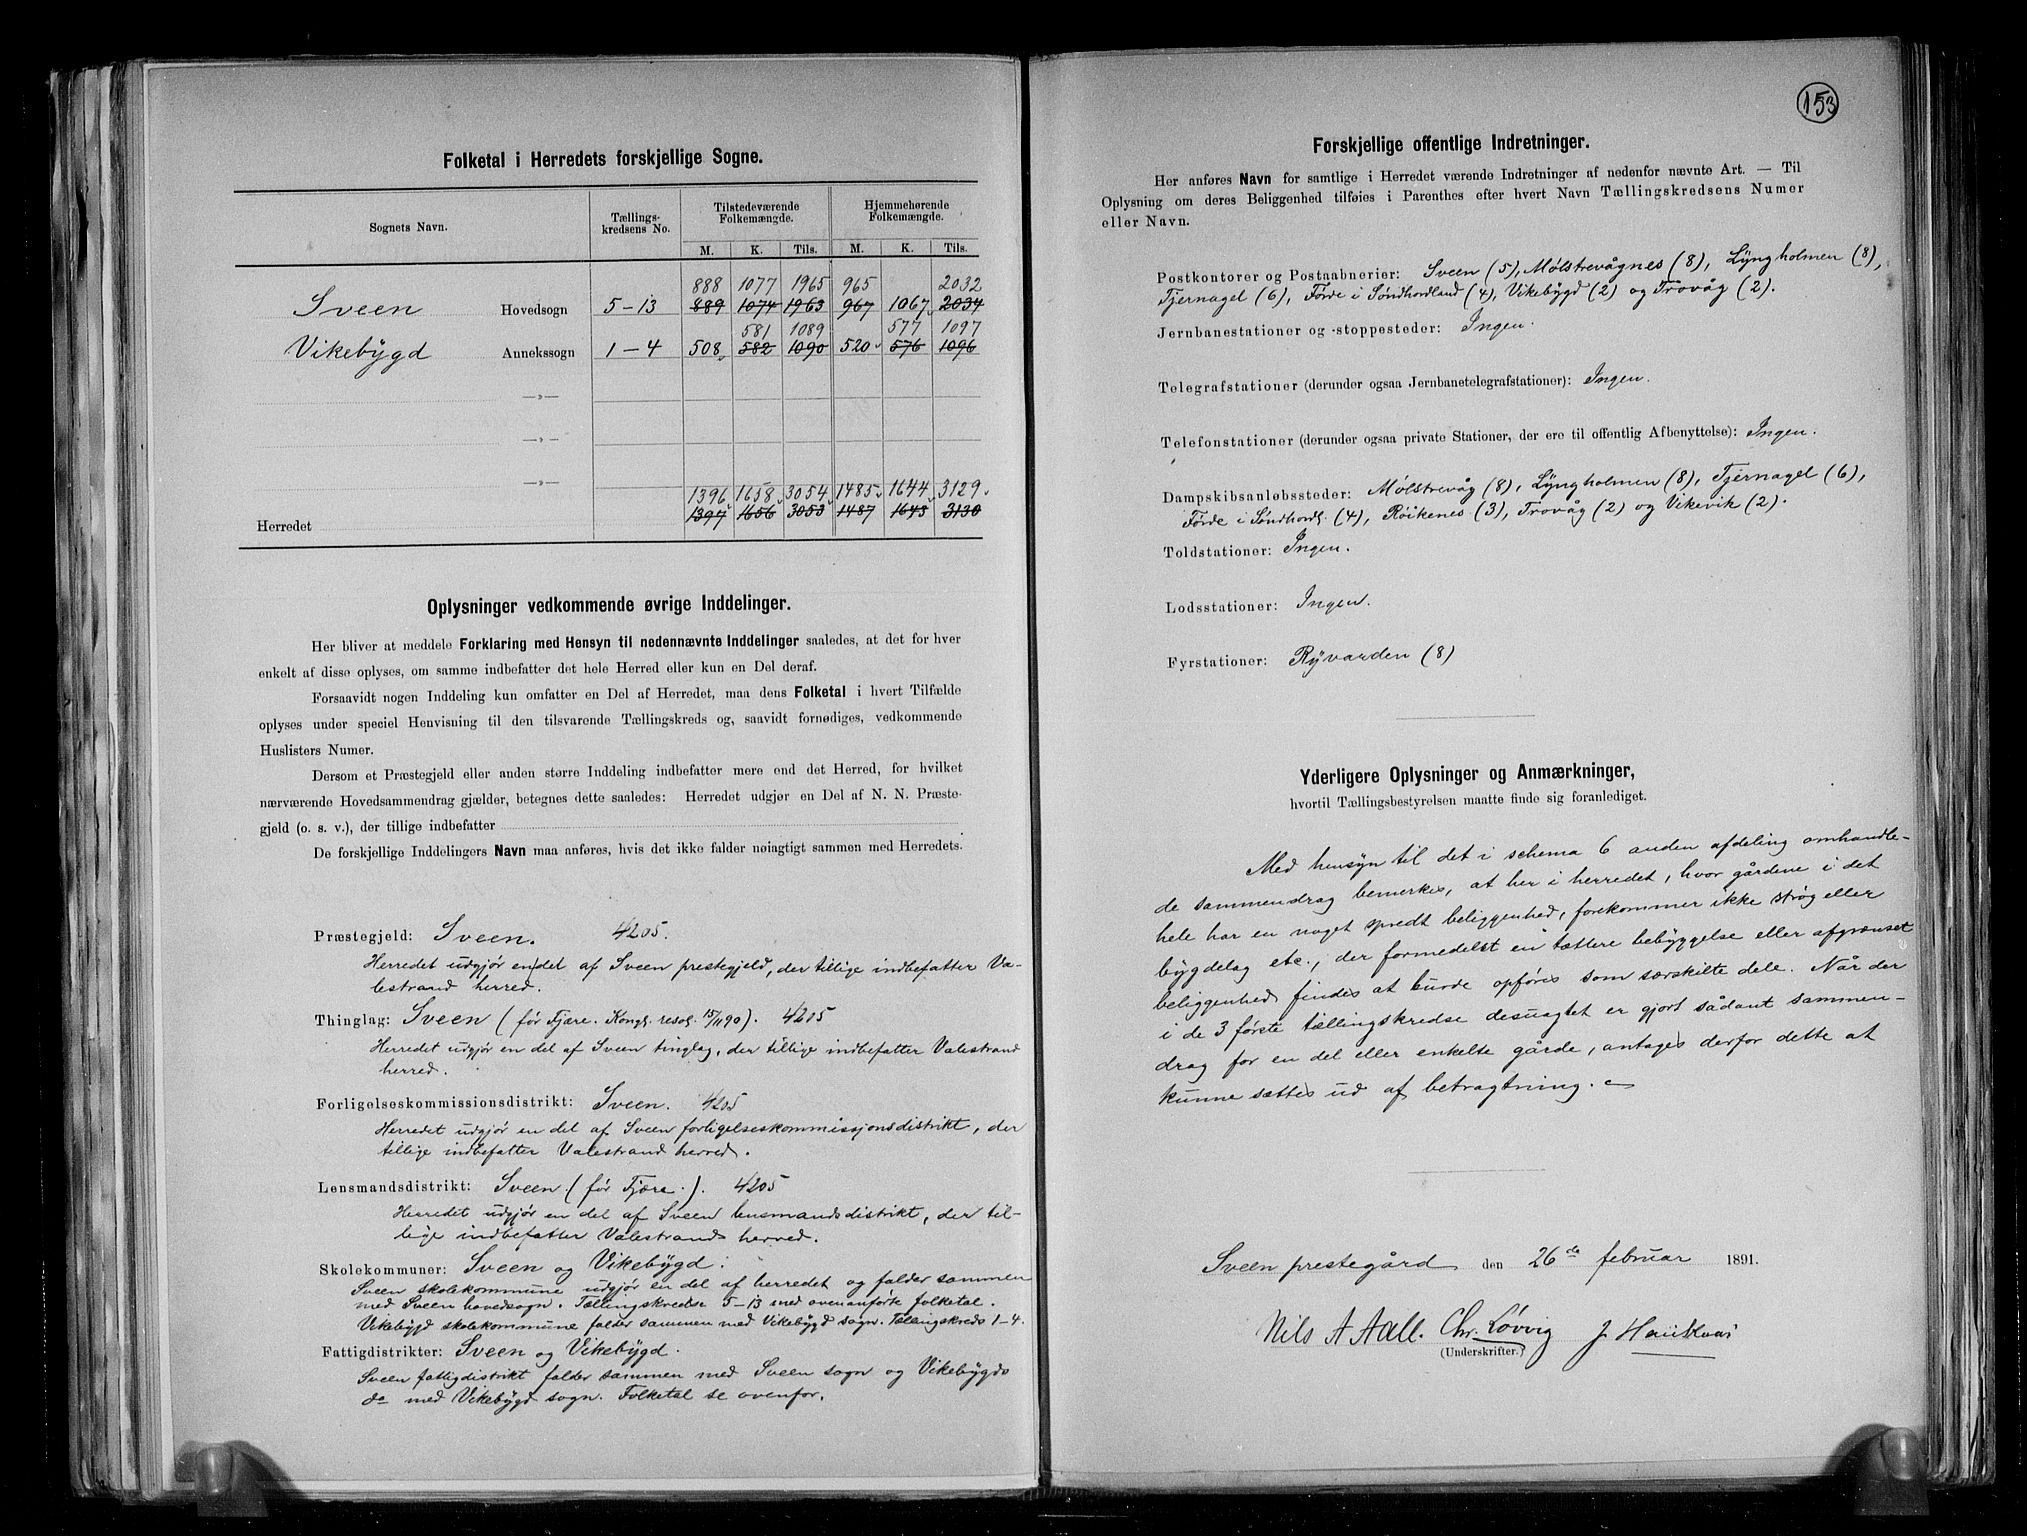 Folketal i Herredets forskjellige Sogne.
Sognets Navn. Tællings-kredsens No. Tilstedeværende Folkemængde. Hjemmehørende Folkemængde.
M. K. Tils. M. K. Tils.
888 1077 1965 965 2032
Sveen Hovedsogn 5-13 889 1074 1963 967 1067 2034
581 1089 577 1097
Vikebÿgd Annekssogn 1-4 508 582 1090 520 576 1096
—»—
—»—
—»—
1396 1658 3054 1485 1644 3129
Herredet 1397 1656 3053 1487 1643 3130
Oplysninger vedkommende øvrige Inddelinger.
Her bliver at meddele Forklaring med Hensyn til nedennævnte Inddelinger saaledes, at det for hver
enkelt af disse oplyses, om samme indbefatter det hele Herred eller kun en Del deraf.
Forsaavidt nogen Inddeling kun omfatter en Del af Herredet, maa dens Folketal i hvert Tilfælde
oplyses under speciel Henvisning til den tilsvarende Tællingskreds og, saavidt fornødiges, vedkommende
Huslisters Numer.
Dersom et Præstegjeld eller anden større Inddeling indbefatter mere end det Herred, for hvilket
nærværende Hovedsammendrag gjælder, betegnes dette saaledes: Herredet udgjør en Del af N. N. Præste-
gjeld (o. s. v.), der tillige indbefatter
De forskjellige Inddelingers Navn maa anføres, hvis det ikke falder nøiagtigt sammen med Herredets.
Præstegjeld: Sveen. 4205.
Herredet udgjør en del af Sveen prestegjeld, der tillige indbefatter Va-
lestrand herred.
Thinglag: Sveen (før Fjære. Kongl. resol. 15/11 90). 4205
Herredet udgjør en del af Sveen tinglag, der tillige indbefatter Valestrand
herred.
Forligelseskommissionsdistrikt: Sveen. 4205
Herredet udgjør en del af Sveen forligelseskommissjonsdistrikt, der
tillige indbefatter Valestrand herred.
Lensmandsdistrikt: Sveen (før Fjære.). 4205
Herredet udgjør en del af Sveen lensmandsdistrikt, der til-
lige indbefatter Valestrands herred.
Skolekommuner: Sveen og Vikebÿgd.
Sveen skolekommune udgjør en del af herredet og falder sammen
med Sveen hovedsogn. Tællingskredse 5-13 med ovenanførte folketal.
Vikebÿgd skolekommune falder sammen med Vikebÿgd sogn. Tællingskreds 1-4.
Fattigdistrikter: Sveen og Vikebÿgd.
Sveen fattigdistrikt falder sammen med Sveen sogn og Vikebÿgds
do med Vikebÿgd sogn. Folketal se ovenfor.
153
Forskjellige offentlige Indretninger.
Her anføres Navn for samtlige i Herredet værende Indretninger af nedenfor nævnte Art. — Til
Oplysning om deres Beliggenhed tilføies i Parenthes efter hvert Navn Tællingskredsens Numer
eller Navn.
Postkontorer og Postaabnerier: Sveen (5), Mølstrevågnes (8), Lÿngholmen (8),
Tjernagel (6), Førde i Søndhordland (4), Vikebÿgd (2) og Trovåg (2).
Jernbanestationer og -stoppesteder: Ingen.
Telegrafstationer (derunder ogsaa Jernbanetelegrafstationer): Ingen.
Telefonstationer (derunder ogsaa private Stationer, der ere til offentlig Afbenyttelse): Ingen.
Dampskibsanløbssteder: Mølstrevåg (8), Lÿngholmen (8), Tjernagel (6),
Førde i Søndhordl. (4), Røikenes (3), Trovåg (2) og Vikevik (2).
Toldstationer: Ingen.
Lodsstationer: Ingen.
Fyrstationer: Rÿvarden (8)
Yderligere Oplysninger og Anmærkninger,
hvortil Tællingsbestyrelsen maatte finde sig foranlediget.
Med hensÿn til det i schema 6 anden afdeling omhandle-
de sammendrag bemerkes, at her i herredet, hvor gårdene i det
hele har en noget spredt beliggenhed, forekommer ikke strøg eller
bÿgdelag etc., der formedelst en tættere bebÿggelse eller afgrænset
beliggenhed findes at burde opføres som særskilte dele. Når der
i de 3 første tællingskredse desuagtet er gjort sådant sammen-
drag for en del eller enkelte gårde, antages derfor dette at
kunne sættes ud af betragtning.
Sveen prestegård den 26de februar 1891.
Nils A Aall. Chr. Løvvig J
(Underskrifter.)